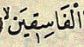 الْفَاسِقِينَ ۙ